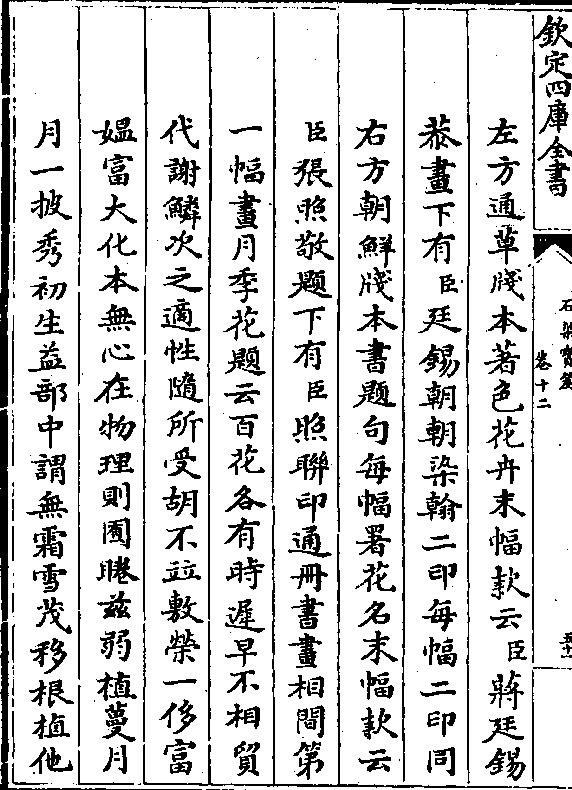 欽定四庫全書
石渠寳笈
卷十二
左方通草牋本著色花卉末幅款云臣蔣廷錫
恭畫下有臣廷錫朝朝染翰二印每幅二印同
右方朝鮮牋本書題句每幅署花名末幅款云
臣張照敬題下有臣照聯印通冊書畫相間第
一幅畫月季花題云百花各有時遲早不相貿
代謝鱗次之適性隨所受胡不竝敷榮一侈富
媪富大化本無心在物理則囿睠兹弱植蔓月
月一披秀初生益部中謂無霜雪茂移根植他